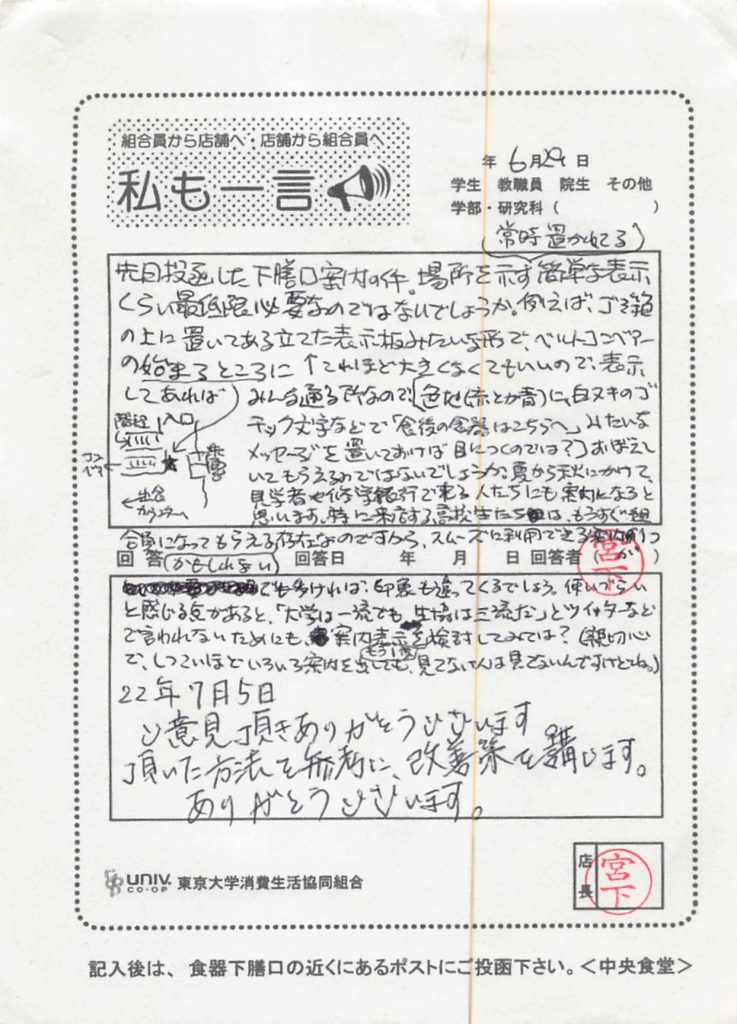 組合員から店舗へ・店舗から組合員へ
私も一言
年 6月29日
学生 教職員 院生 その他
学部・研究科( )
(常時置かれてる)
先日投函した下膳口案内の件。場所を示す簡単な表示
くらい最低限必要なのではないでしょうか。例えば、ゴミ箱
の上に置いてある立てた表示板みたいな形で、ベルトコンベアー
の始まるところに ↑これほど大きくなくてもいいので、表示
してあれば
みんな通る所なので(色地(赤とか青)に、白ヌキのゴ
チック文字などで「食後の食器はこちらへ」みたいな
メッセージを置いておけば目につくのでは?)おぼえ
いてもらえるのではないでしょうか?夏から秋にかけて、
見学者や修学旅行で来る人たちにも案内になると
思います。特に来店する高校生たちは、もうすぐ組
合員になってもらえる存在なのですから、スムーズに利用できる案内が1つ
階段 入口
コンベア ★
←出会カウンターへ
回答 (かもしれない) 回答日 年 月 日 回答者( が )
宮下
でも多ければ、印象も違ってくるでしょう。使いづらい
と感じる点があると、「大学は一流でも、生協は三流だ」とツイッターなど
で言われないためにも、案内表示を検討してみては?(親切心
もう1度
で、しつこいほどいろいろ案内を出しても、見てない人は見てないんですけどね。)
22年7月5日
ご意見頂きありがとうございます
頂いた方法を参考に、改善策を講じます。
ありがとうございます。
UNIV. CO-OP 東京大学消費生活協同組合
店長 宮下
記入後は、食器下膳口の近くにあるポストにご投函下さい。<中央食堂>